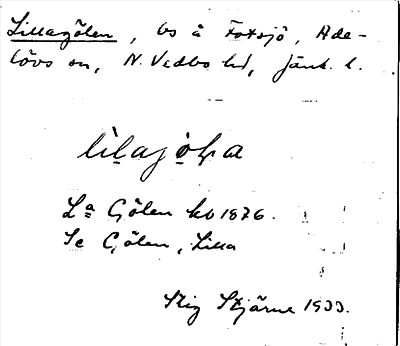 Lillagölen, bs å Fotsjö, Ade-
lövs sn, N. Vedbo hd, Jönk. l.
lìlajö̀ḷa
La Gölen hv 1876.
Se Gölen, Lilla
Stig Stjärne 1933.